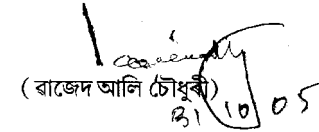 ( ৱাজেদ আলি চৌধুৰী)
31/10/05